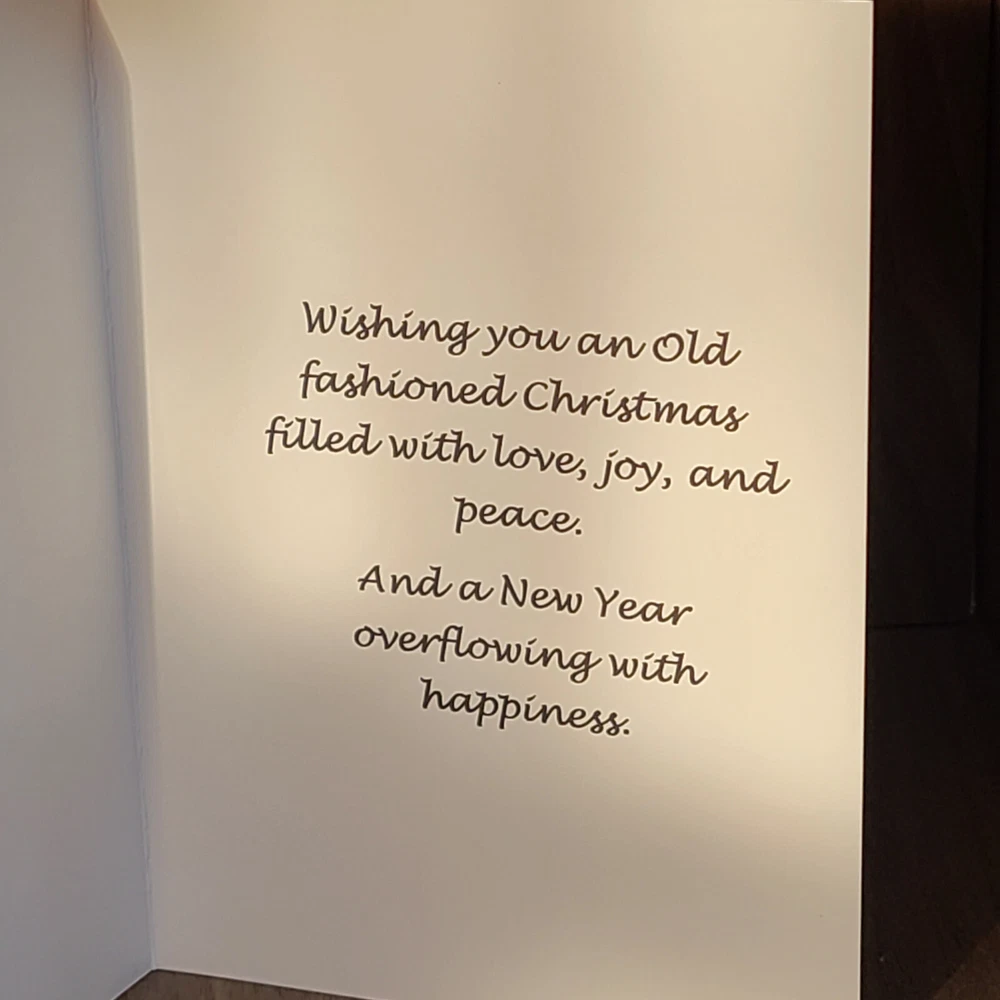 Wishing you an Old
fashioned Christmas
filled with love, joy, and
peace.
And a New Year
overflowing with
happiness.